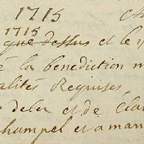 1715
1715
que dessus et le
à la benediction n
alités Requises
de la et de cla
champel et a man